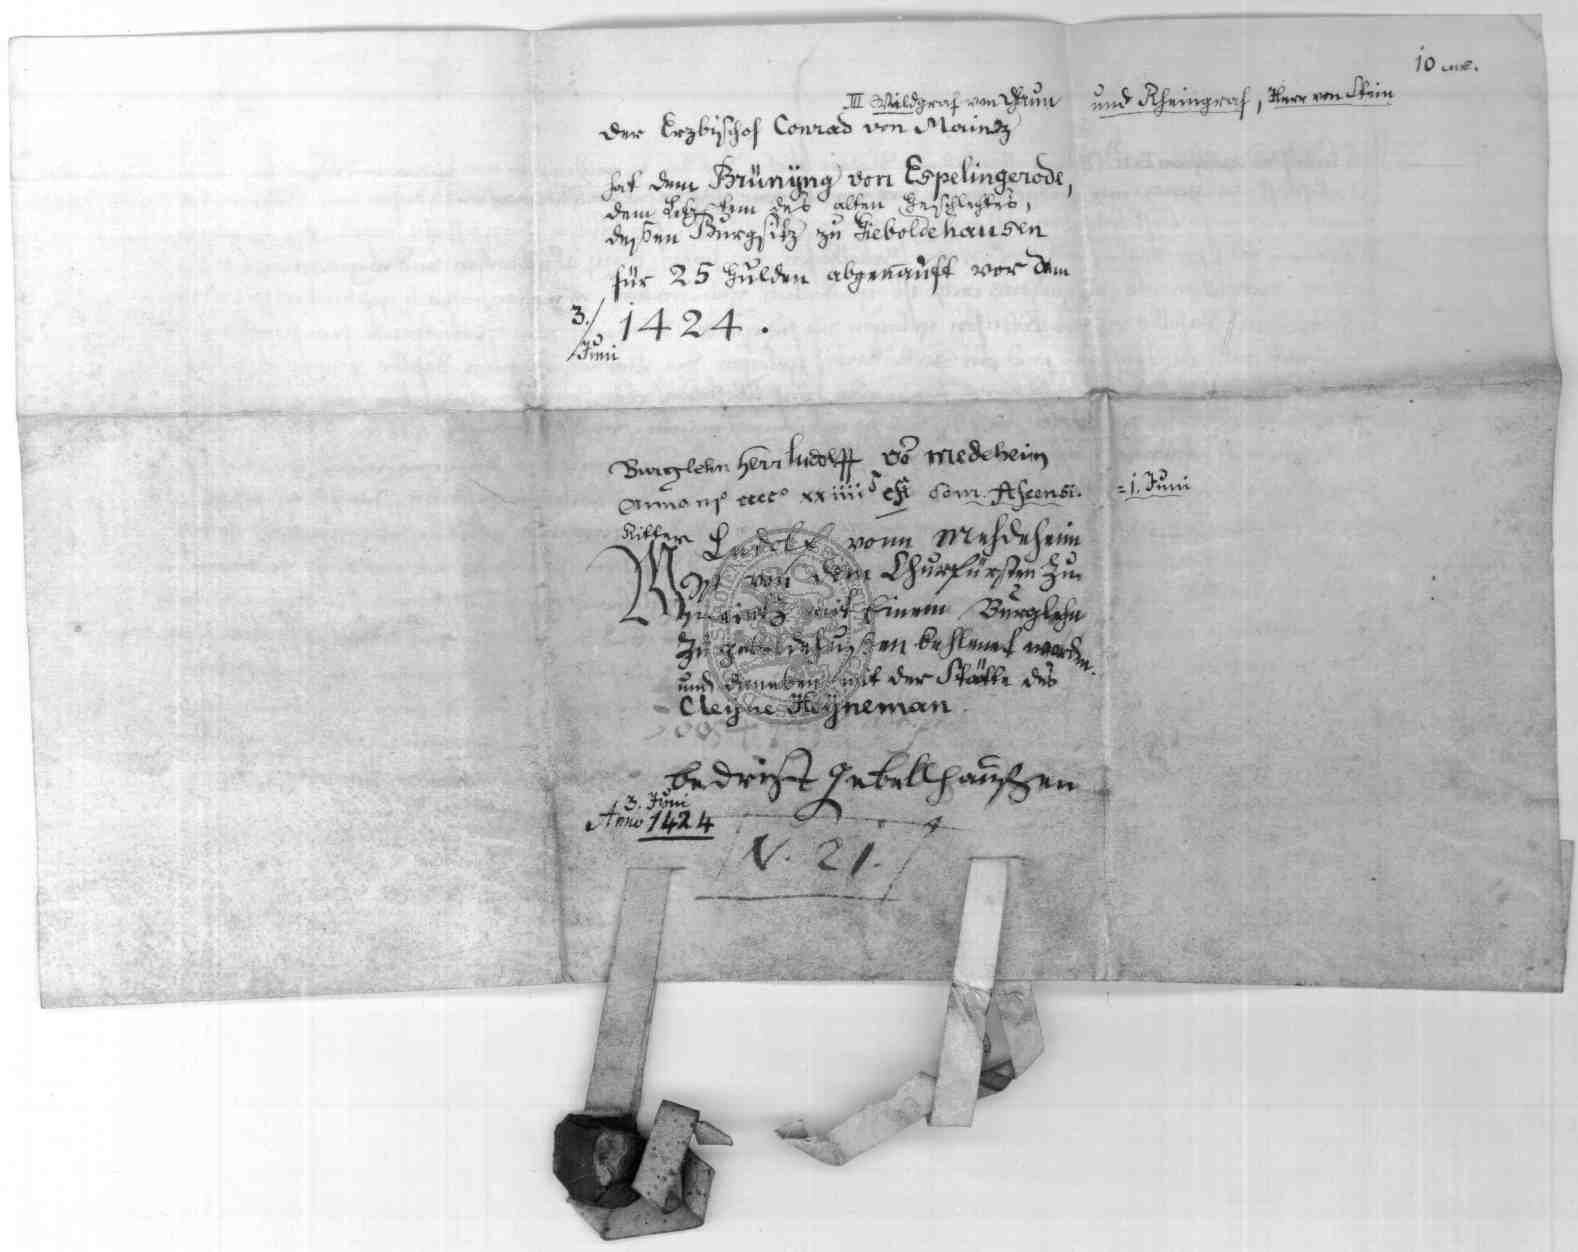 10
III Wildgraf von Dhun und Rheingraf, Herr von Stein
der Erzbischof Conrad von Maintz
hat dem Brünÿng von Espelingerode,
dem Letztem des alten Geschlechtes,
deßen Burgsitz zu Gieboldehausen
für 25 Gulden abgekauft vor dem
3. Juni 1424.
Burglehn Herr Ludolff vō medeheim
Anno mo cccco xxiiiio = 1. Juni
Ritter Ludolf vonn Mehdeheim
Ist von dem Churfürsten Zu
Meintz mit Einem Burglehn
Zu belehnet worden.
und daneben mit der Stätte des
Cleyne Heÿneman
bedrifft Gebellhaußen
3. Juni
Anno 1424
N. 21.